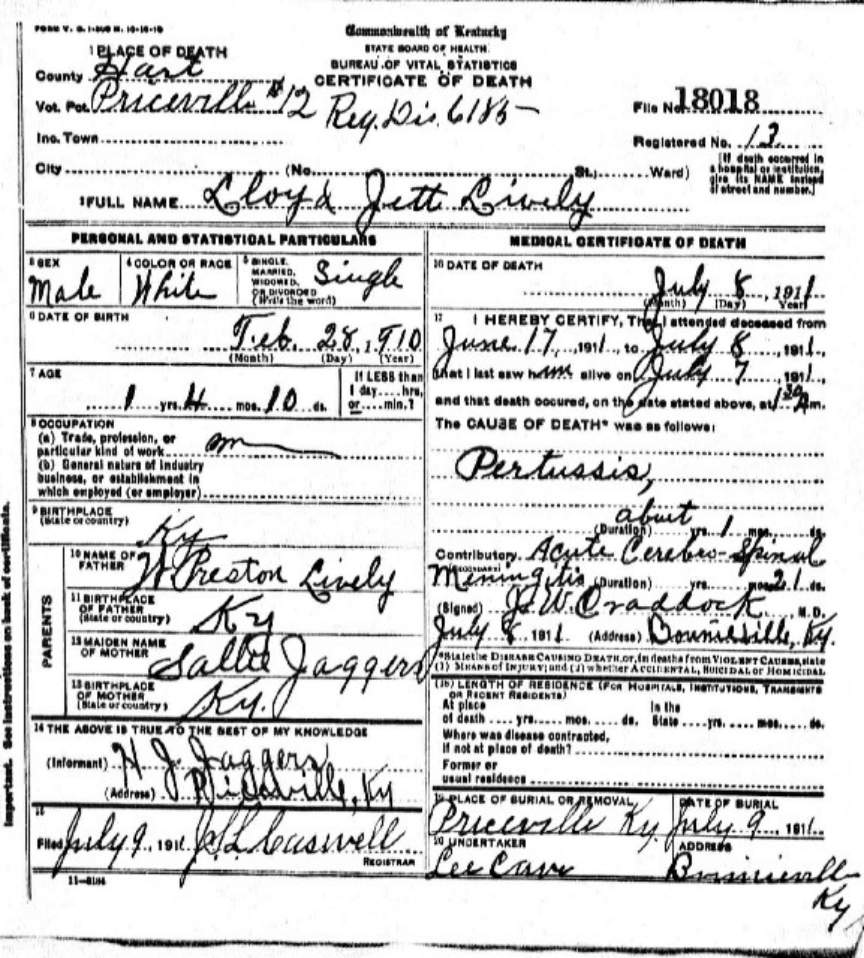 FORM V. S. 1-
Commonwealth of Kentucky
STATE BOARD OF HEALTH.
BUREAU OF VITAL STATISTICS
CERTIFICATE OF DEATH
1 PLACE OF DEATH
County Hart
Vot. Pct. Priceville #12 Reg. Dis. 6185
File No. 18018
Inc. Town
Registered No. 13
City (No. St.; Ward) [If death occurred in a hospital or institution, give its NAME instead of street and number.]
2 FULL NAME Lloyd Jett Lively
PERSONAL AND STATISTICAL PARTICULARS
3 SEX Male
4 COLOR OR RACE White
5 SINGLE, MARRIED, WIDOWED, OR DIVORCED (Write the word) Single
6 DATE OF BIRTH
Feb. 28, 1910
(Month) (Day) (Year)
7 AGE
1 yrs. 4 mos. 10 ds.
If LESS than 1 day....hrs, or....min.?
8 OCCUPATION
(a) Trade, profession, or
particular kind of work
(b) General nature of industry
business, or establishment in
which employed (or employer)
9 BIRTHPLACE
(State or country) Ky
PARENTS
10 NAME OF FATHER W Preston Lively
11 BIRTHPLACE OF FATHER (State or country) Ky
12 MAIDEN NAME OF MOTHER Sallie Jaggers
13 BIRTHPLACE OF MOTHER (State or country) Ky.
14 THE ABOVE IS TRUE TO THE BEST OF MY KNOWLEDGE
(Informant) H J Jaggers
(Address) Priceville, Ky
15
Filed July 9, 1911 J L Caswell
REGISTRAR
11-8184
MEDICAL CERTIFICATE OF DEATH
16 DATE OF DEATH
July 8, 1911
(Month) (Day) Year
17 I HEREBY CERTIFY, That I attended deceased from
June 17, 1911, to July 8, 1911,
that I last saw him alive on July 7, 1911,
and that death occured, on the date stated above, at 1 30 A m.
The CAUSE OF DEATH* was as follows:
Pertussis,
about
(Duration) yrs. 1 mos. ds.
Contributory Acute Cerebro-Spinal
(SECONDARY) Meningitis (Duration) yrs. mos. 21 ds.
(Signed) J. W. Craddock, M.D.
July 8 1911 (Address) Bonnieville, Ky.
*State the DISEASE CAUSING DEATH, or, in deaths from VIOLENT CAUSES, state
(1) MEANS OF INJURY; and (2) whether ACCIDENTAL, SUICIDAL or HOMICIDAL
(18) LENGTH OF RESIDENCE (FOR HOSPITALS, INSTITUTIONS, TRANSIENTS
OR RECENT RESIDENTS)
At place In the
of death .... yrs. .... mos. .... ds. State .... yrs. .... mos. .... ds.
Where was disease contracted,
if not at place of death?
Former or
usual residence
19 PLACE OF BURIAL OR REMOVAL Priceville Ky.
DATE OF BURIAL July 9, 1911.
20 UNDERTAKER Lee Cave
ADDRESS Bonnieville Ky
Important. See instructions on back of certificate.